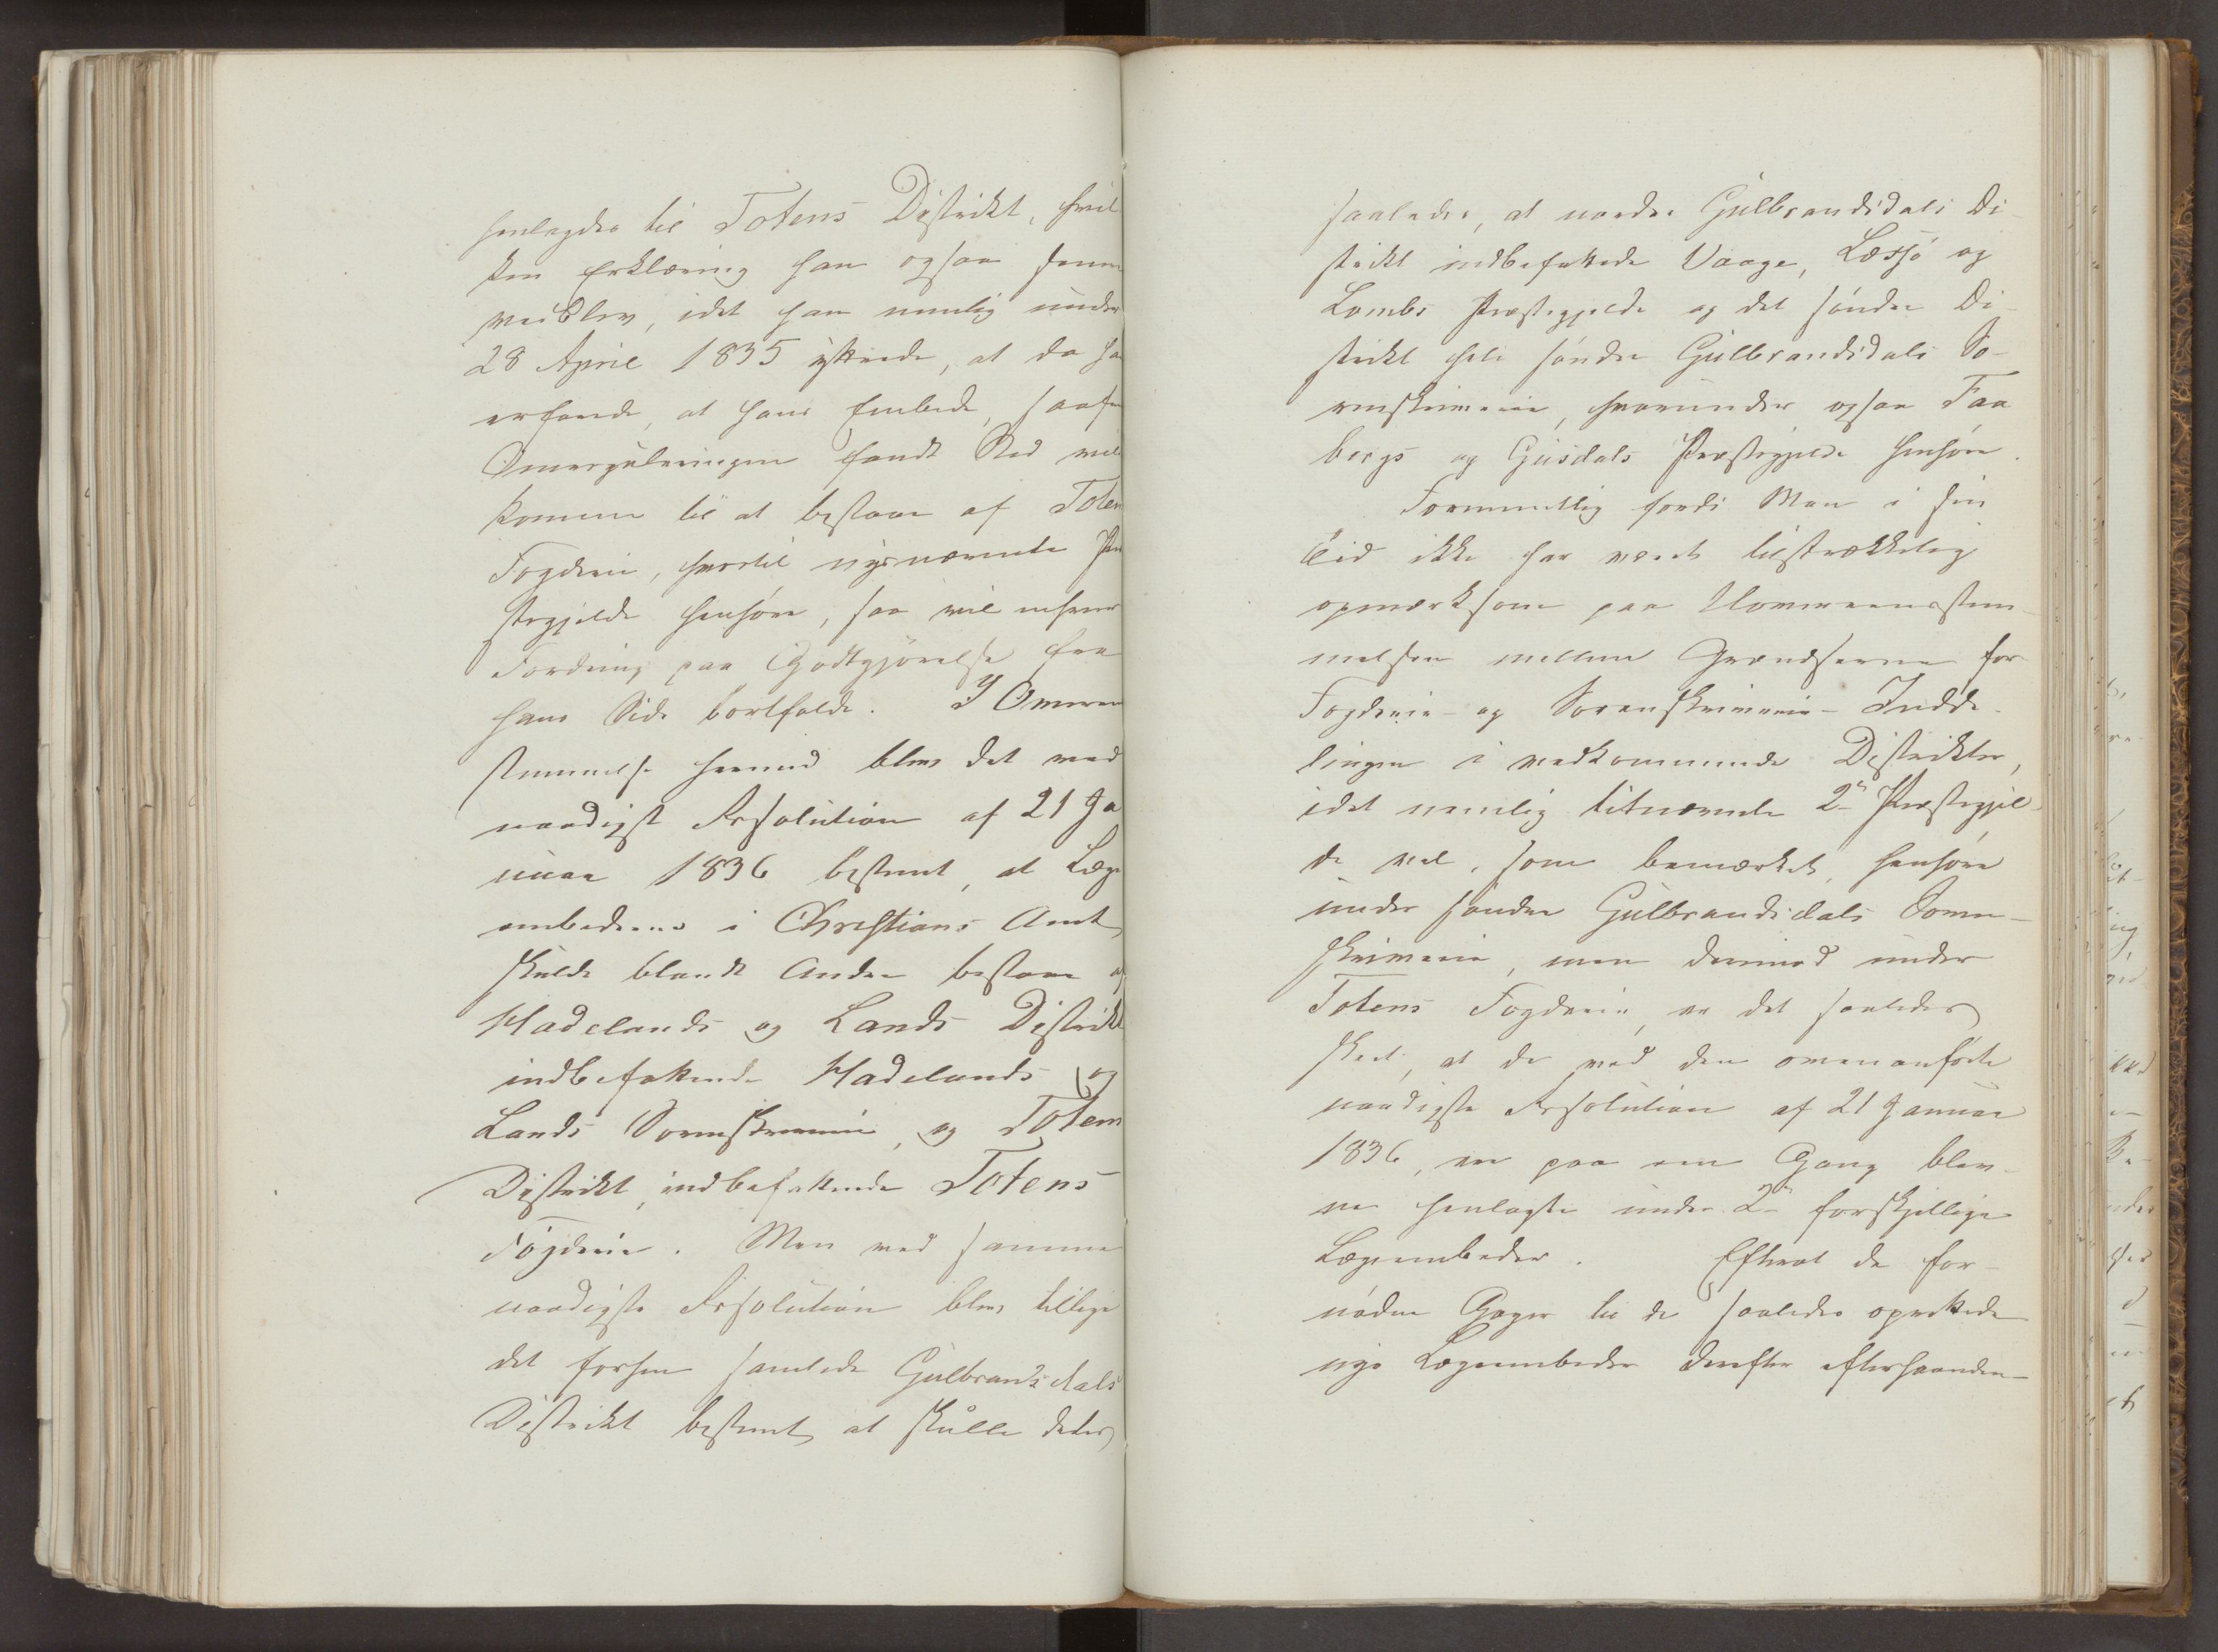 henlagdes til Totens Distrikt, hvil
ken Erklæring han ogsaa senere
vedblev, idet han nemlig under
28 April 1835 yttrede, at da han
erfarede, at hans Embede, saafr
Omreguleringen fandt Sted vil
komme til at bestaae af Toten
Fogderie, hvortil nysnævnte Præ
stegjelde henhøre, saa vil enhver
Fordring paa Godtgjørelse fra
hans Side bortfalde. I Overen
stemmelse hermed blev det ved
naadigst Resolution af 21 Ja
nuar 1836 bestemt, at Læge
embederne i Christians Amt
skulde blandt Andre bestaae af
Hadelands og Lands Distrikt
indbefattende Hadelands og
Lands Sorenskriverie, og Totens
Distrikt, indbefattende Totens
Fogderie. Men ved samme
naadigste Resolution blev tillige
det forhen samlede Gulbrandsdals
Distrikt bestemt at skulle deles
saaledes, at nordre Gulbrandsdals Di
strikt indbefattede Vaage, Læssø og
Lombs Præstegjelde og det søndre Di
strikt hele søndre Gulbrandsdals So-
renskriverie, hvorunder ogsaa Faa
bergs og Gusdals Præstegjelde henhøre.
Formentlig fordi Man i sin
Tid ikke har været tilstrækkelig
opmærksom paa Uoverensstem-
melsen mellem Grændserne for
Fogderie- og Sorenskriverie-Indde-
lingen i vedkommende Distrikter,
idet nemlig titnævnte 2de Præstegjel-
de vel, som bemærket, henhøre
under søndre Gulbrandsdals Soren-
skriverie, men derimod under
Totens Fogderie, er det saaledes
skeet, at de ved den ovenanførte
naadigste Resolution af 21 Januar
1836, ere paa een Gang blev-
ne henlagte under 2de forskjellige
Lægeembeder. Efterat de for-
nødne Gager til de saaledes oprettede
nye Lægeembeder derefter efterhaanden